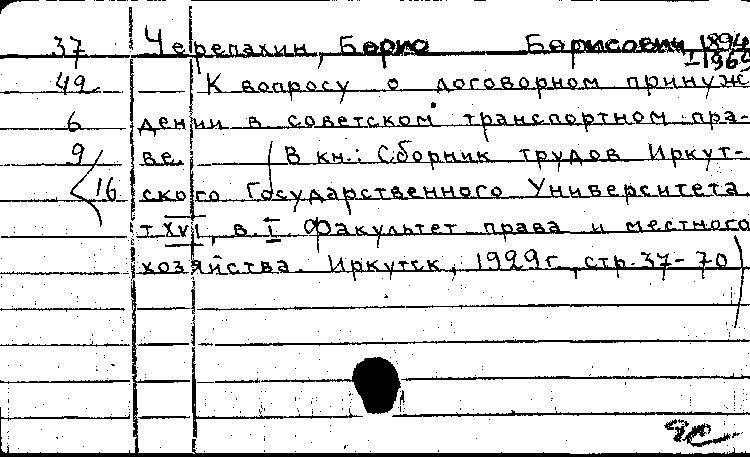 37 Черепахин, Борис Борисович 1894
-1969
49 К вопросу о договорном принуж
6 дении в советском транспортном пра-
9 ве. (В кн.: Сборник трудов Иркут-
16 ского Государственного Университета
т XVI, в. I. Факультет права и местного
хозяйства. Иркутск, 1929г, стр. 37-70)